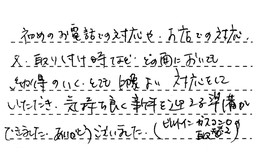 初めのお電話での対応や、お店での対応、
又、取り付け時など、どの面においても
納得のいく、とても心暖よい対応をして
いただき、気持ち良く新年を迎える準備が
できました。ありがとうございました。(ビルトインガスコンロの取替え)